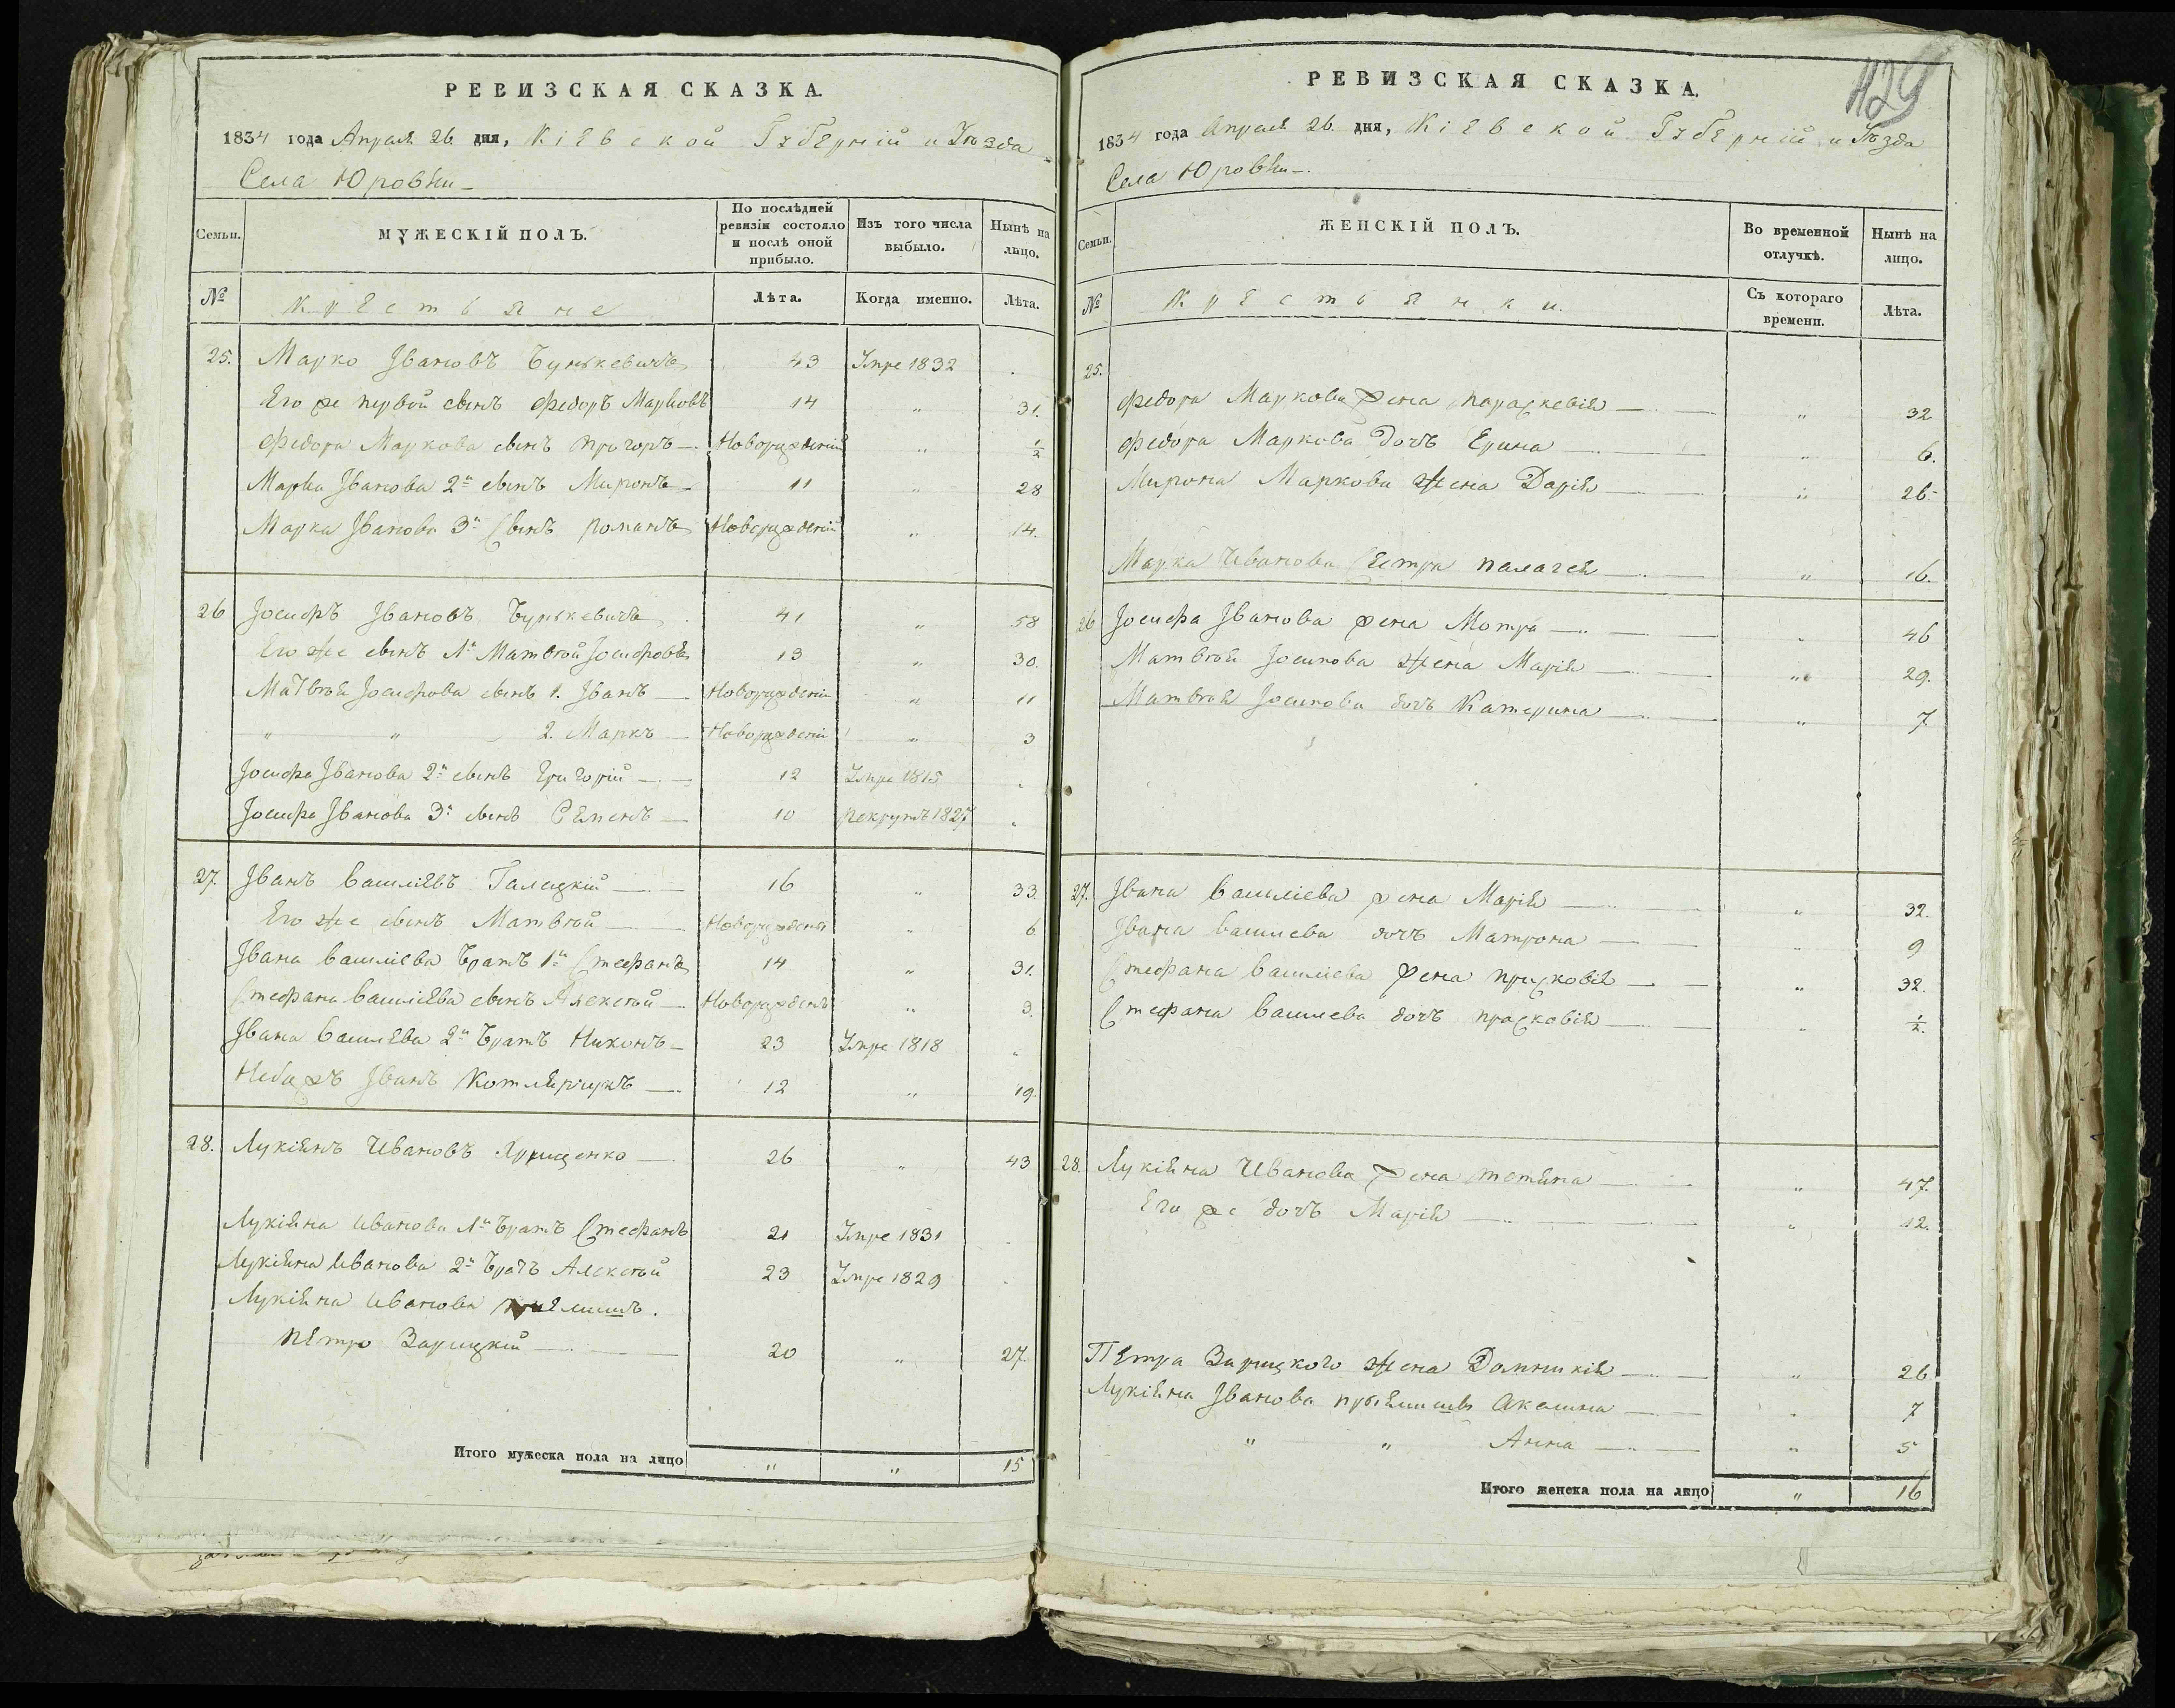 РЕВИЗСКАЯ СКАЗКА.
1834 года Апреля 26 дня, Кіевской Губерній и Уѣзда
Села Юровки
Семьи. МУЖЕСКІЙ ПОЛЪ. По послѣдней ревизіи состояло и послѣ оной прибыло. Изъ того числа выбыло. Нынѣ на лицо.
№ Крестьяне Лѣта. Когда именно. Лѣта.
25. Марко Івановъ Бунькевичъ 43 Умре 1832
Его же первой сынъ Федоръ Марковъ 14 " 31.
Федора Маркова сынъ Григоръ Новорожденій " ½
Марка Іванова 2й сынъ Миронъ 11 " 28
Марка Іванова 3й Сынъ Романъ Новорожденій " 14.
26 Іосифъ Івановъ Бунькевичъ 41 " 58
Его же сынъ 1й Матвѣй Іосифовъ 13 " 30.
Матвѣя Іосифова сынъ 1. Іванъ Новорожденій " 11
" " 2. Маркъ Новорожденій " 3
Іосифа Іванова 2й сынъ Григорій 12 Умре 1815
Іосифа Іванова 3й сынъ Семенъ 10 рекрутъ 1827
27. Іванъ Василіевъ Галецкій 16 " 33
Его же сынъ Матвѣй Новорожденъ " 6
Івана Василіева Братъ 1й Стефанъ 14 " 31.
Стефана Василіева сынъ Алексѣй Новорожденъ " 3.
Івана Василіева 2й Братъ Никонъ 23 Умре 1818
Небожъ Іванъ Котлярчукъ 12 " 19.
28. Лукіянъ Ивановъ Хрищенко 26 " 43
Лукіяна Иванова 1й Братъ Стефанъ 21 Умре 1831
Лукіяна Иванова 2й Братъ Алексѣй 23 Умре 1829
Лукіяна Иванова
Петро Зарицкій 20 " 27.
Итого мужеска пола на лицо " " 15
429
РЕВИЗСКАЯ СКАЗКА.
1834 года Апреля 26 дня, Кіевской Губерній и Уѣзда
Села Юровки
Семьи. ЖЕНСКІЙ ПОЛЪ. Во временной отлучкѣ. Нынѣ на лицо.
№ Крестьянки. Съ котораго времени. Лѣта.
25.
Федора Маркова жена Параскевія " 32
Федора Маркова дочъ Ерина " 6.
Мирона Маркова жена Дарія " 26
Марка Иванова Сестра Палагея " 16.
26 Іосифа Іванова жена Мотря " 46
Матвѣя Іосипова жена Марія " 29.
Матвѣя Іосипова дочъ Катерина " 7
27. Івана Василіева жена Марія " 32.
Івана Василева дочъ Матрона " 9
Стефана Василіева жена Присковія " 32.
Стефана Василева дочъ Прасковія " ½.
28. Лукіяна Иванова жена Тотяна " 47.
Его же дочъ Марія " 12.
Петра Зарицкого жена Домникія " 26
Лукіяна Іванова Акелина " 7
" " Анна " 5
Итого женска пола на лицо " 16